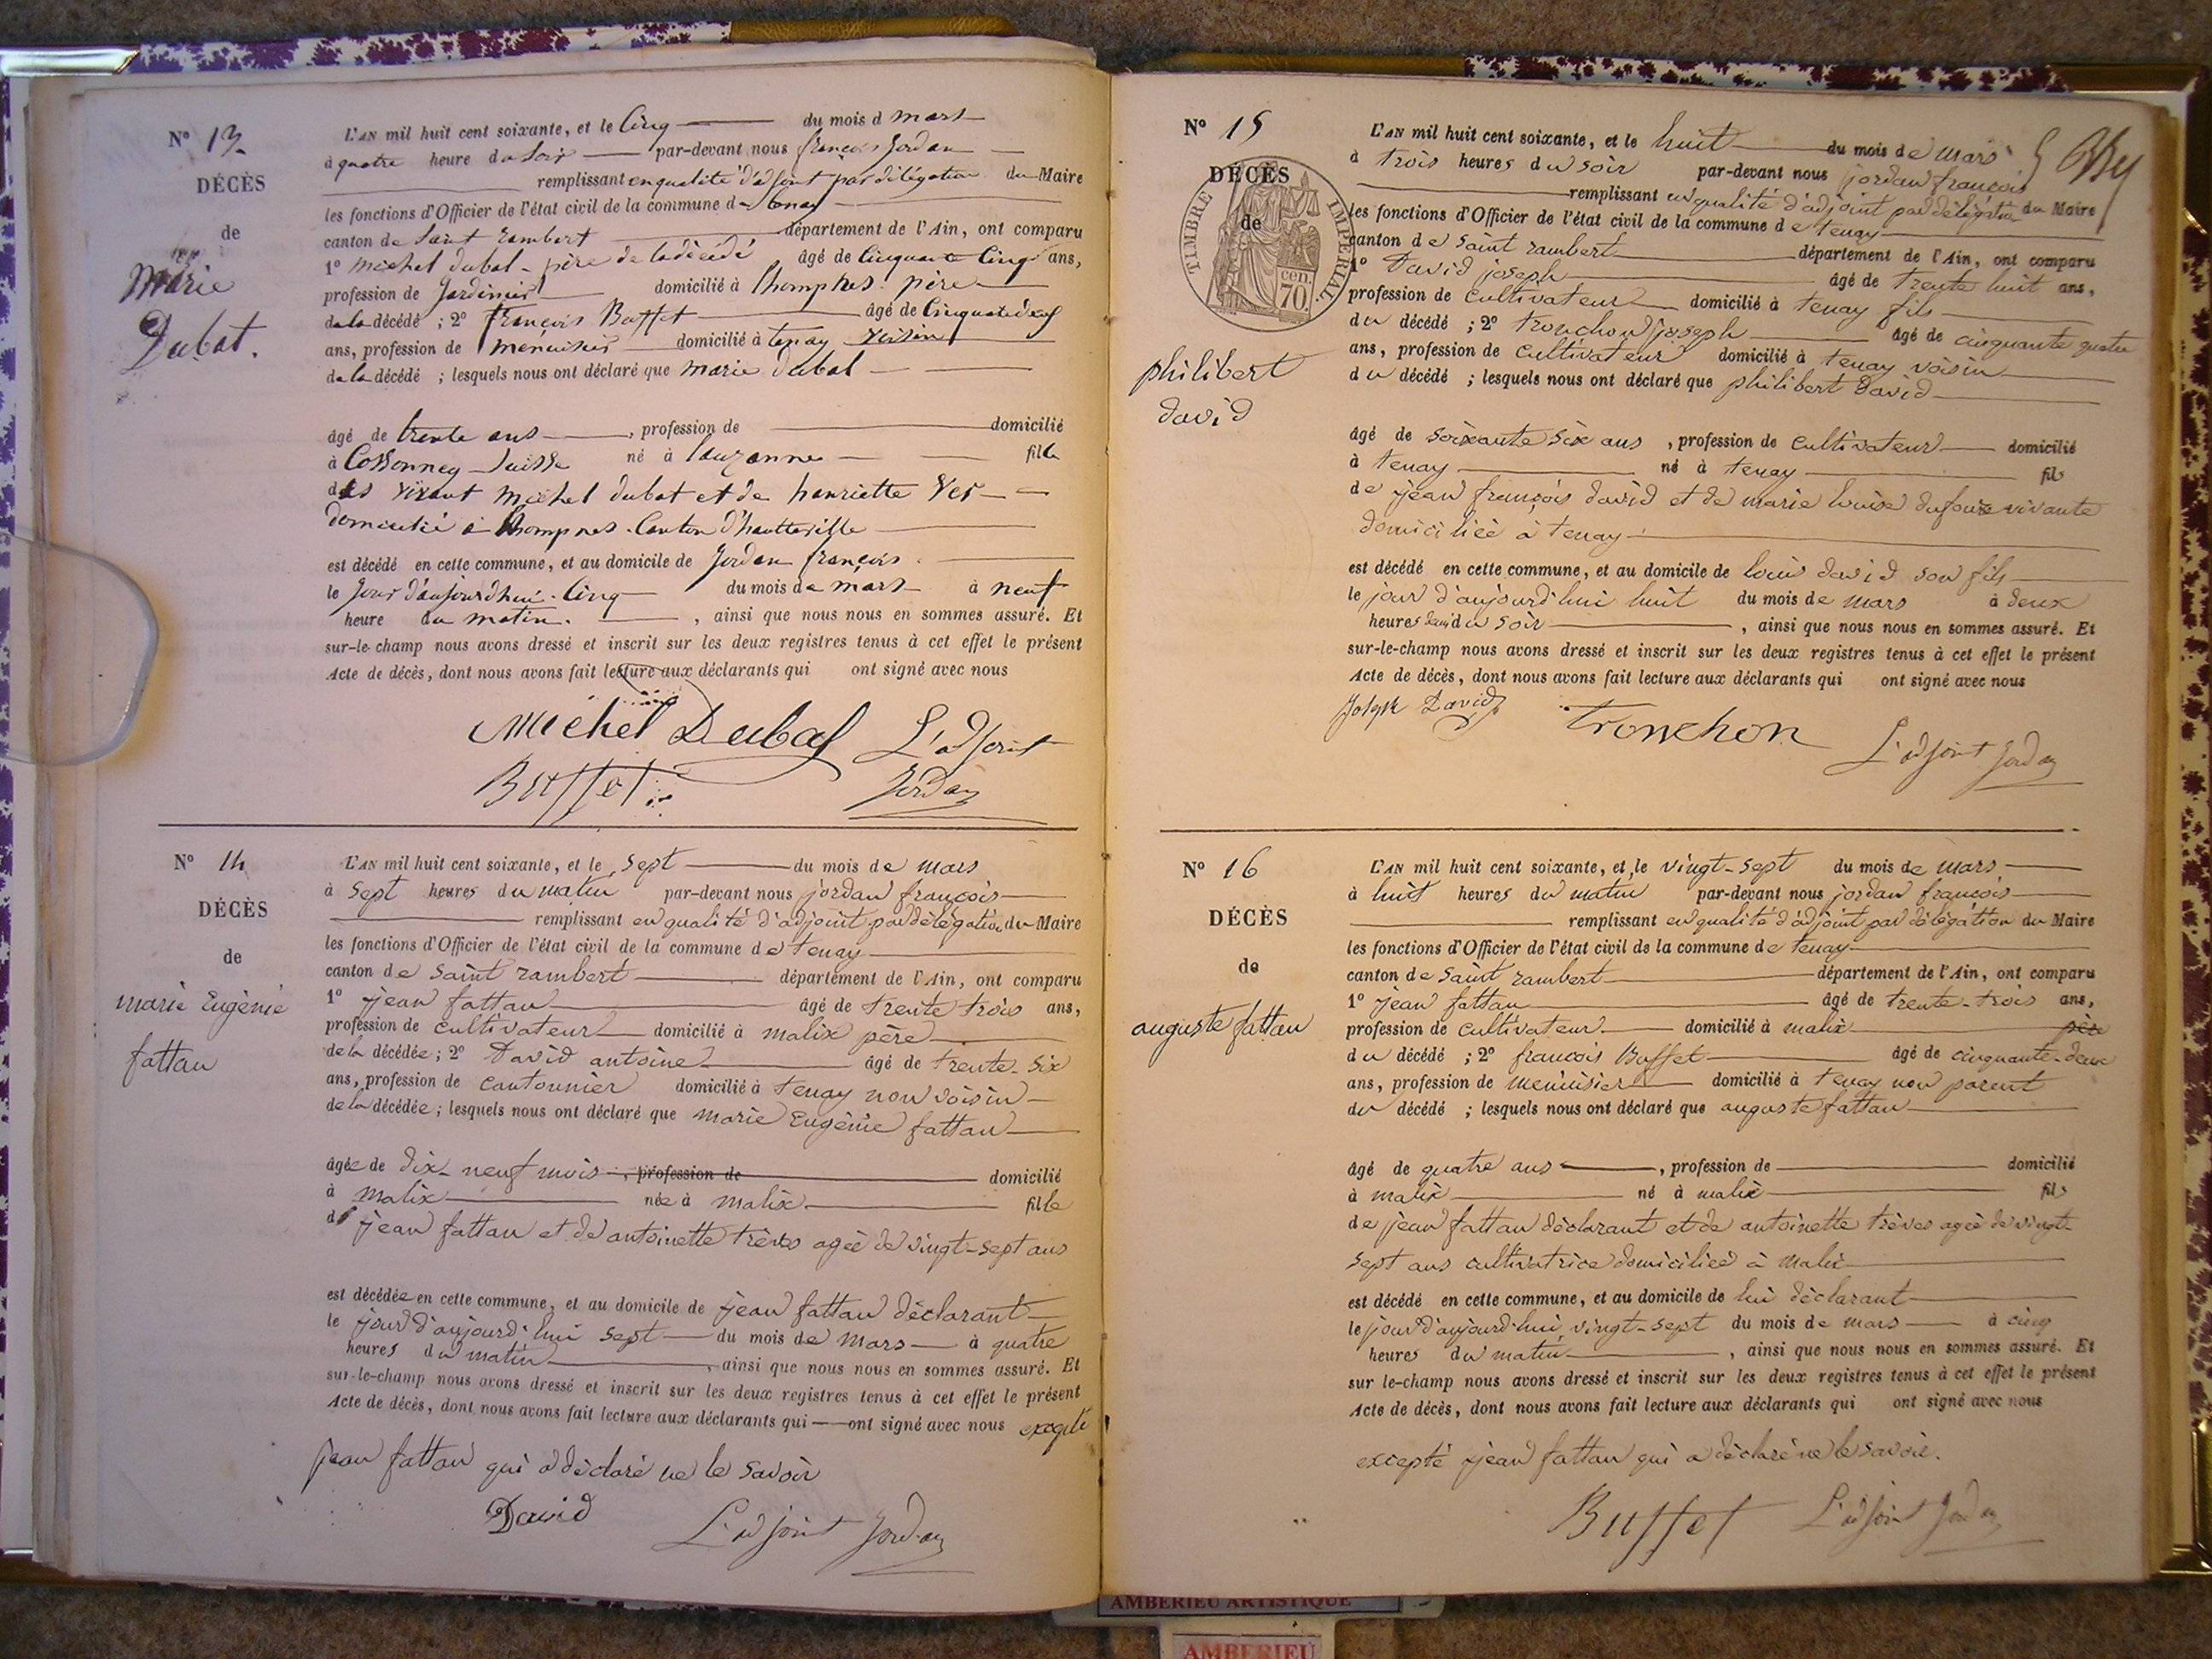 Nº 13
DÉCÈS
de
Marie
Dubat.
L'AN mil huit cent soixante, et le Cinq du mois d mars
à quatre heure du Soir par-devant nous françois Jordan
remplissant en qualité d'adjoint par délégation du Maire
les fonctions d'Officier de l'état civil de la commune de tenay
canton de Saint Rambert département de l'Ain, ont comparu
1º Michel Dubat père de la décédé âgé de Cinquante Cinq ans,
profession de Jardinier domicilié à thompnes père
de la décédé ; 2º françois Buffet âgé de Cinquante deux
ans, profession de menuisier domicilié à tenay voisin
de la décédé ; lesquels nous ont déclaré que marie dubat
âgé de trente ans , profession de domicilié
à Cossonney Suisse né à lauzanne fille
des vivant Michel dubat et de henriette
domicilié à thompnes Canton d'hautteville
est décédé en cette commune, et au domicile de Jordan françois
le Jour d'aujourdhui Cinq du mois de mars à neuf
heure du matin. , ainsi que nous nous en sommes assuré. Et
sur-le-champ nous avons dressé et inscrit sur les deux registres tenus à cet effet le présent
Acte de décès, dont nous avons fait lecture aux déclarants qui ont signé avec nous
Michel Dubat L'adjoint
Buffet Jordan
Nº 14
DÉCÈS
de
marie Eugènie
fattan
L'AN mil huit cent soixante, et le sept du mois de mars
à sept heures du matin par-devant nous jordan françois
remplissant en qualité d'adjoint par délégation du Maire
les fonctions d'Officier de l'état civil de la commune de tenay
canton de saint rambert département de l'Ain, ont comparu
1º jean fattan âgé de trente trois ans,
profession de cultivateur domicilié à malix père
de la décédée ; 2º David antoine âgé de trente-six
ans, profession de cantonnier domicilié à tenay non voisin
de la décédée ; lesquels nous ont déclaré que marie Eugènie fattan
âgée de dix-neuf mois , profession de domicilié
à malix née à malix fille
de jean fattan et de antoinette trèves agée de vingt-sept ans
est décédée en cette commune, et au domicile de jean fattan déclarant
le jour d'aujourd'hui sept du mois de mars à quatre
heures du matin , ainsi que nous nous en sommes assuré. Et
sur-le-champ nous avons dressé et inscrit sur les deux registres tenus à cet effet le présent
Acte de décès, dont nous avons fait lecture aux déclarants qui ont signé avec nous excepté
jean fattan qui a déclaré ne le savoir
David L'adjoint Jordan
Nº 15
DÉCÈS
de
TIMBRE IMPÉRIAL
70 cen.
philibert
david
L'AN mil huit cent soixante, et le huit du mois de mars
à trois heures du soir par-devant nous jordan françois
remplissant en qualité d'adjoint par délégation du Maire
les fonctions d'Officier de l'état civil de la commune de tenay
canton de saint rambert département de l'Ain, ont comparu
1º David joseph âgé de trente huit ans,
profession de cultivateur domicilié à tenay fils
du décédé ; 2º tronchon joseph âgé de cinquante quatre
ans, profession de cultivateur domicilié à tenay voisin
du décédé ; lesquels nous ont déclaré que philibert David
âgé de soixante six ans , profession de cultivateur domicilié
à tenay né à tenay fils
de jean françois david et de marie louise dufour vivante
domiciliée à tenay
est décédé en cette commune, et au domicile de louis david son fils
le jour d'aujourd'hui huit du mois de mars à deux
heures du soir , ainsi que nous nous en sommes assuré. Et
sur-le-champ nous avons dressé et inscrit sur les deux registres tenus à cet effet le présent
Acte de décès, dont nous avons fait lecture aux déclarants qui ont signé avec nous
Joseph David Tronchon L'adjoint Jordan
Nº 16
DÉCÈS
de
auguste fattan
L'AN mil huit cent soixante, et le vingt-sept du mois de mars
à huit heures du matin par-devant nous jordan françois
remplissant en qualité d'adjoint par délégation du Maire
les fonctions d'Officier de l'état civil de la commune de tenay
canton de saint rambert département de l'Ain, ont comparu
1º jean fattan âgé de trente-trois ans,
profession de cultivateur domicilié à malix père
du décédé ; 2º francois Buffet âgé de cinquante-deux
ans, profession de menuisier domicilié à tenay non parent
du décédé ; lesquels nous ont déclaré que auguste fattan
âgé de quatre ans , profession de domicilié
à malix né à malix fils
de jean fattan déclarant et de antoinette trèves agée de vingt-
sept ans cultivatrice domiciliée à malix
est décédé en cette commune, et au domicile de lui déclarant
le jour d'aujourd'hui vingt-sept du mois de mars à cinq
heures du matin , ainsi que nous nous en sommes assuré. Et
sur le-champ nous avons dressé et inscrit sur les deux registres tenus à cet effet le présent
Acte de décès, dont nous avons fait lecture aux déclarants qui ont signé avec nous
excepté jean fattan qui a déclaré ne le savoir.
Buffet L'adjoint Jordan
AMBERIEU ARTISTIQUE
AMBERIEU